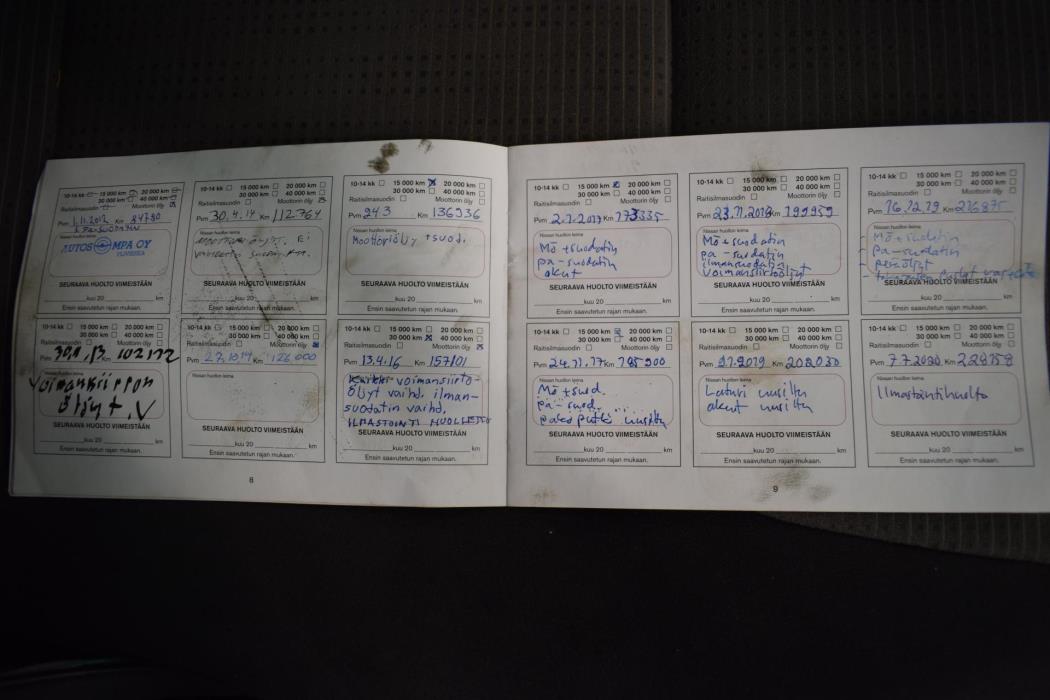 10-14 kk 15 000 km 20 000 km
30 000 km 40 000 km
Raitisilmasuodin Moottorin öljy
Pvm 1.11.2012 Km
Nissan huollon leima
AUTOS MPA OY
YLIVIESKA
SEURAAVA HUOLTO VIIMEISTÄÄN
kuu 20 km
10-14 kk 15 000 km 20 000 km
30 000 km 40 000 km
Raitisilmasuodin Moottorin öljy
Pvm 30.4.14 Km 112764
Nissan huollon leima
Ei
SEURAAVA HUOLTO VIIMEISTÄÄN
kuu 20 km
Ensin saavutetun rajan mukaan.
10-14 kk 15 000 km 20 000 km
30 000 km 40 000 km
Raitisilmasuodin Moottorin öljy
Pvm 24.3 Km 136936
Nissan huollon leima
Moottoriöljy + suod.
SEURAAVA HUOLTO VIIMEISTÄÄN
kuu 20 km
Ensin saavutetun rajan mukaan.
10-14 kk 15 000 km 20 000 km
30 000 km 40 000 km
Raitisilmasuodin Moottorin öljy
Pvm Km 102172
Voimansiirron
Öljyt. V
SEURAAVA HUOLTO VIIMEISTÄÄN
kuu 20 km
Ensin saavutetun rajan mukaan.
10-14 kk 15 000 km 20 000 km
30 000 km 40 000 km
Raitisilmasuodin Moottorin öljy
Pvm 27.10 14 Km 126000
Nissan huollon leima
SEURAAVA HUOLTO VIIMEISTÄÄN
kuu 20 km
Ensin saavutetun rajan mukaan.
10-14 kk 15 000 km 20 000 km
30 000 km 40 000 km
Raitisilmasuodin Moottorin öljy
Pvm 13.4.16 Km 157101
Kaikki voimansiirto-
öljyt vaihd. ilman-
suodatin vaihd.
ILMASTOINTI HUOLLETTU
SEURAAVA HUOLTO VIIMEISTÄÄN
kuu 20 km
Ensin saavutetun rajan mukaan.
8
10-14 kk 15 000 km 20 000 km
30 000 km 40 000 km
Raitisilmasuodin Moottorin öljy
Pvm 2.2.2017 Km 173335
Nissan huollon leima
Mö + suodatin
pa-suodatin
akut
SEURAAVA HUOLTO VIIMEISTÄÄN
kuu 20 km
Ensin saavutetun rajan mukaan.
10-14 kk 15 000 km 20 000 km
30 000 km 40 000 km
Raitisilmasuodin Moottorin öljy
Pvm 23.11.2018 Km 199959
Nissan huollon leima
Mö + suodatin
pa-suodatin
ilmansuodatin
voimansiirtoöljyt
SEURAAVA HUOLTO VIIMEISTÄÄN
kuu 20 km
Ensin saavutetun rajan mukaan.
10-14 kk 15 000 km 20 000 km
30 000 km 40 000 km
Raitisilmasuodin Moottorin öljy
Pvm 16.12.19 Km 216875
Nissan huollon leima
- Mö + suodatin
- pa-suodatin
- peräöljyt
SEURAAVA HUOLTO VIIMEISTÄÄN
kuu 20 km
Ensin saavutetun rajan mukaan.
10-14 kk 15 000 km 20 000 km
30 000 km 40 000 km
Raitisilmasuodin Moottorin öljy
Pvm 24.11.17 Km 185900
Nissan huollon leima
Mö + suod.
pa-suod.
pakoputki uusittu
SEURAAVA HUOLTO VIIMEISTÄÄN
kuu 20 km
Ensin saavutetun rajan mukaan.
10-14 kk 15 000 km 20 000 km
30 000 km 40 000 km
Raitisilmasuodin Moottorin öljy
Pvm 9.1.2019 Km 202030
Nissan huollon leima
Laturi uusittu
akut uusittu
SEURAAVA HUOLTO VIIMEISTÄÄN
kuu 20 km
Ensin saavutetun rajan mukaan.
10-14 kk 15 000 km 20 000 km
30 000 km 40 000 km
Raitisilmasuodin Moottorin öljy
Pvm 7.7.2020 Km 228758
Nissan huollon leima
Ilmastointihuolto
SEURAAVA HUOLTO VIIMEISTÄÄN
kuu 20 km
Ensin saavutetun rajan mukaan.
9